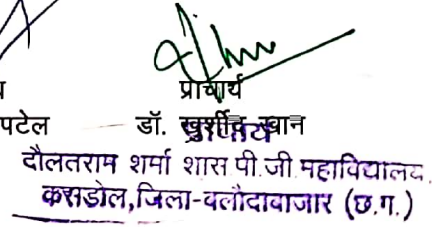 प्राचार्य
पटेल डॉ. खुर्शीद खान
प्राचार्य
दौलतराम शर्मा शास पी.जी.महाविद्यालय
कसडोल,जिला-बलौदाबाजार (छ.ग.)